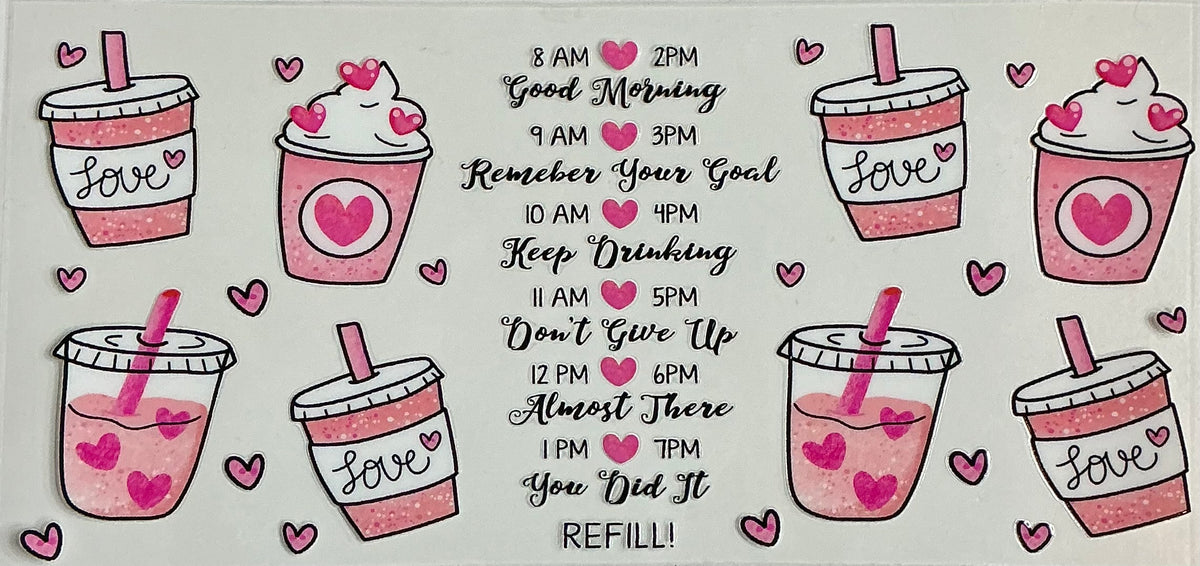 8 AM 2PM
Good Morning
9 AM 3PM
Remeber Your Goal
10 AM 4PM
Keep Drinking
11 AM 5PM
Don't Give Up
12 PM 6PM
Almost There
1 PM 7PM
You Did It
REFILL!
Love
Love
Love
Love